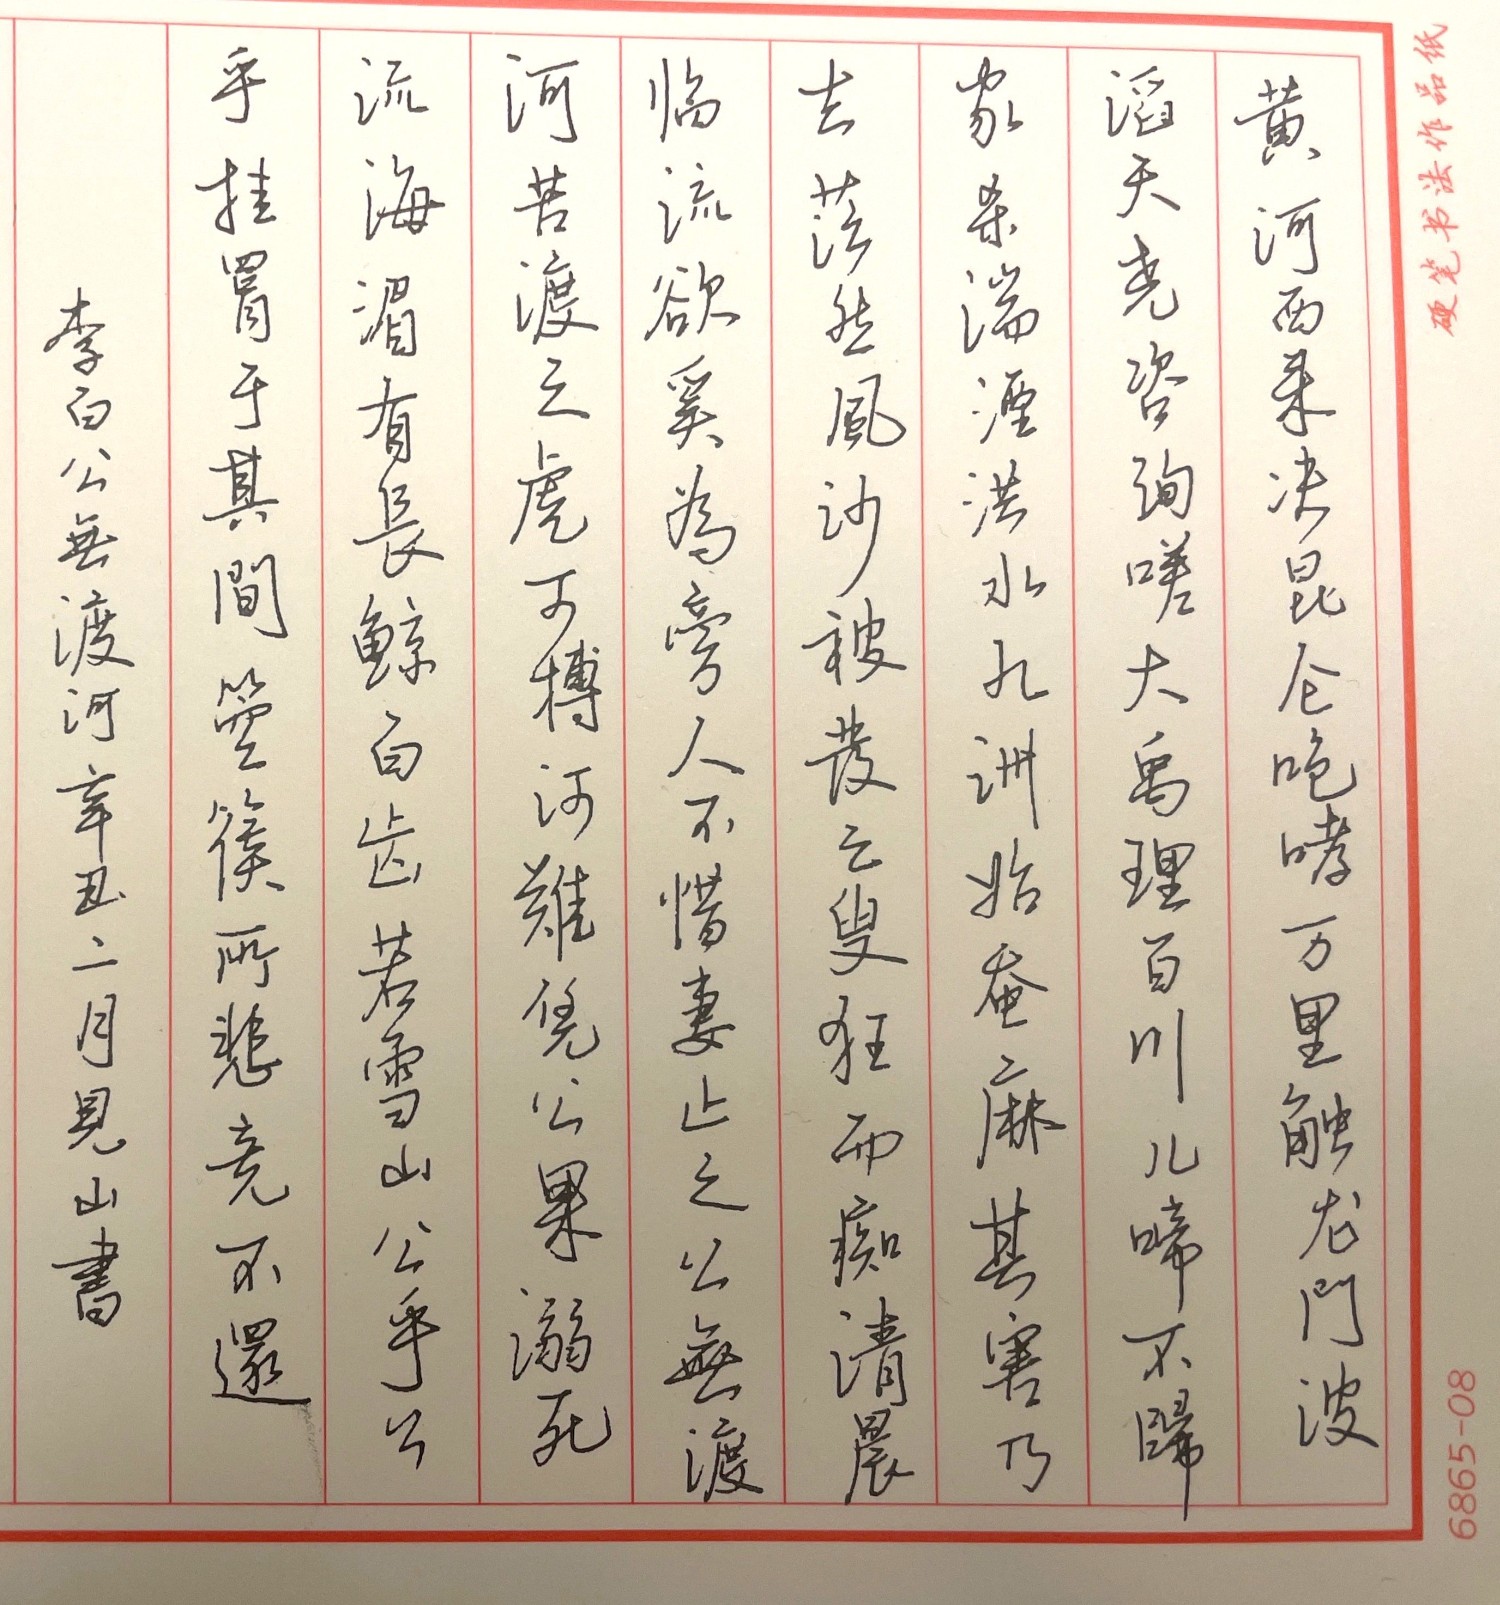 硬笔书法作品纸
黄河西来决昆仑咆哮万里触龙門波
滔天尧咨询嗟大禹理百川儿啼不歸
家杀湍湮洪水九洲始蚕麻其害乃
去茫然風沙被發之叟狂而痴清晨
临流欲奚為旁人不惜妻止之公無渡
河苦渡之虎可搏河難凭公果溺死
流海湄有長鲸白齿若雪山公乎公
乎挂罥于其間箜篌所悲竟不還
李白公無渡河辛丑二月見山書
6865-08